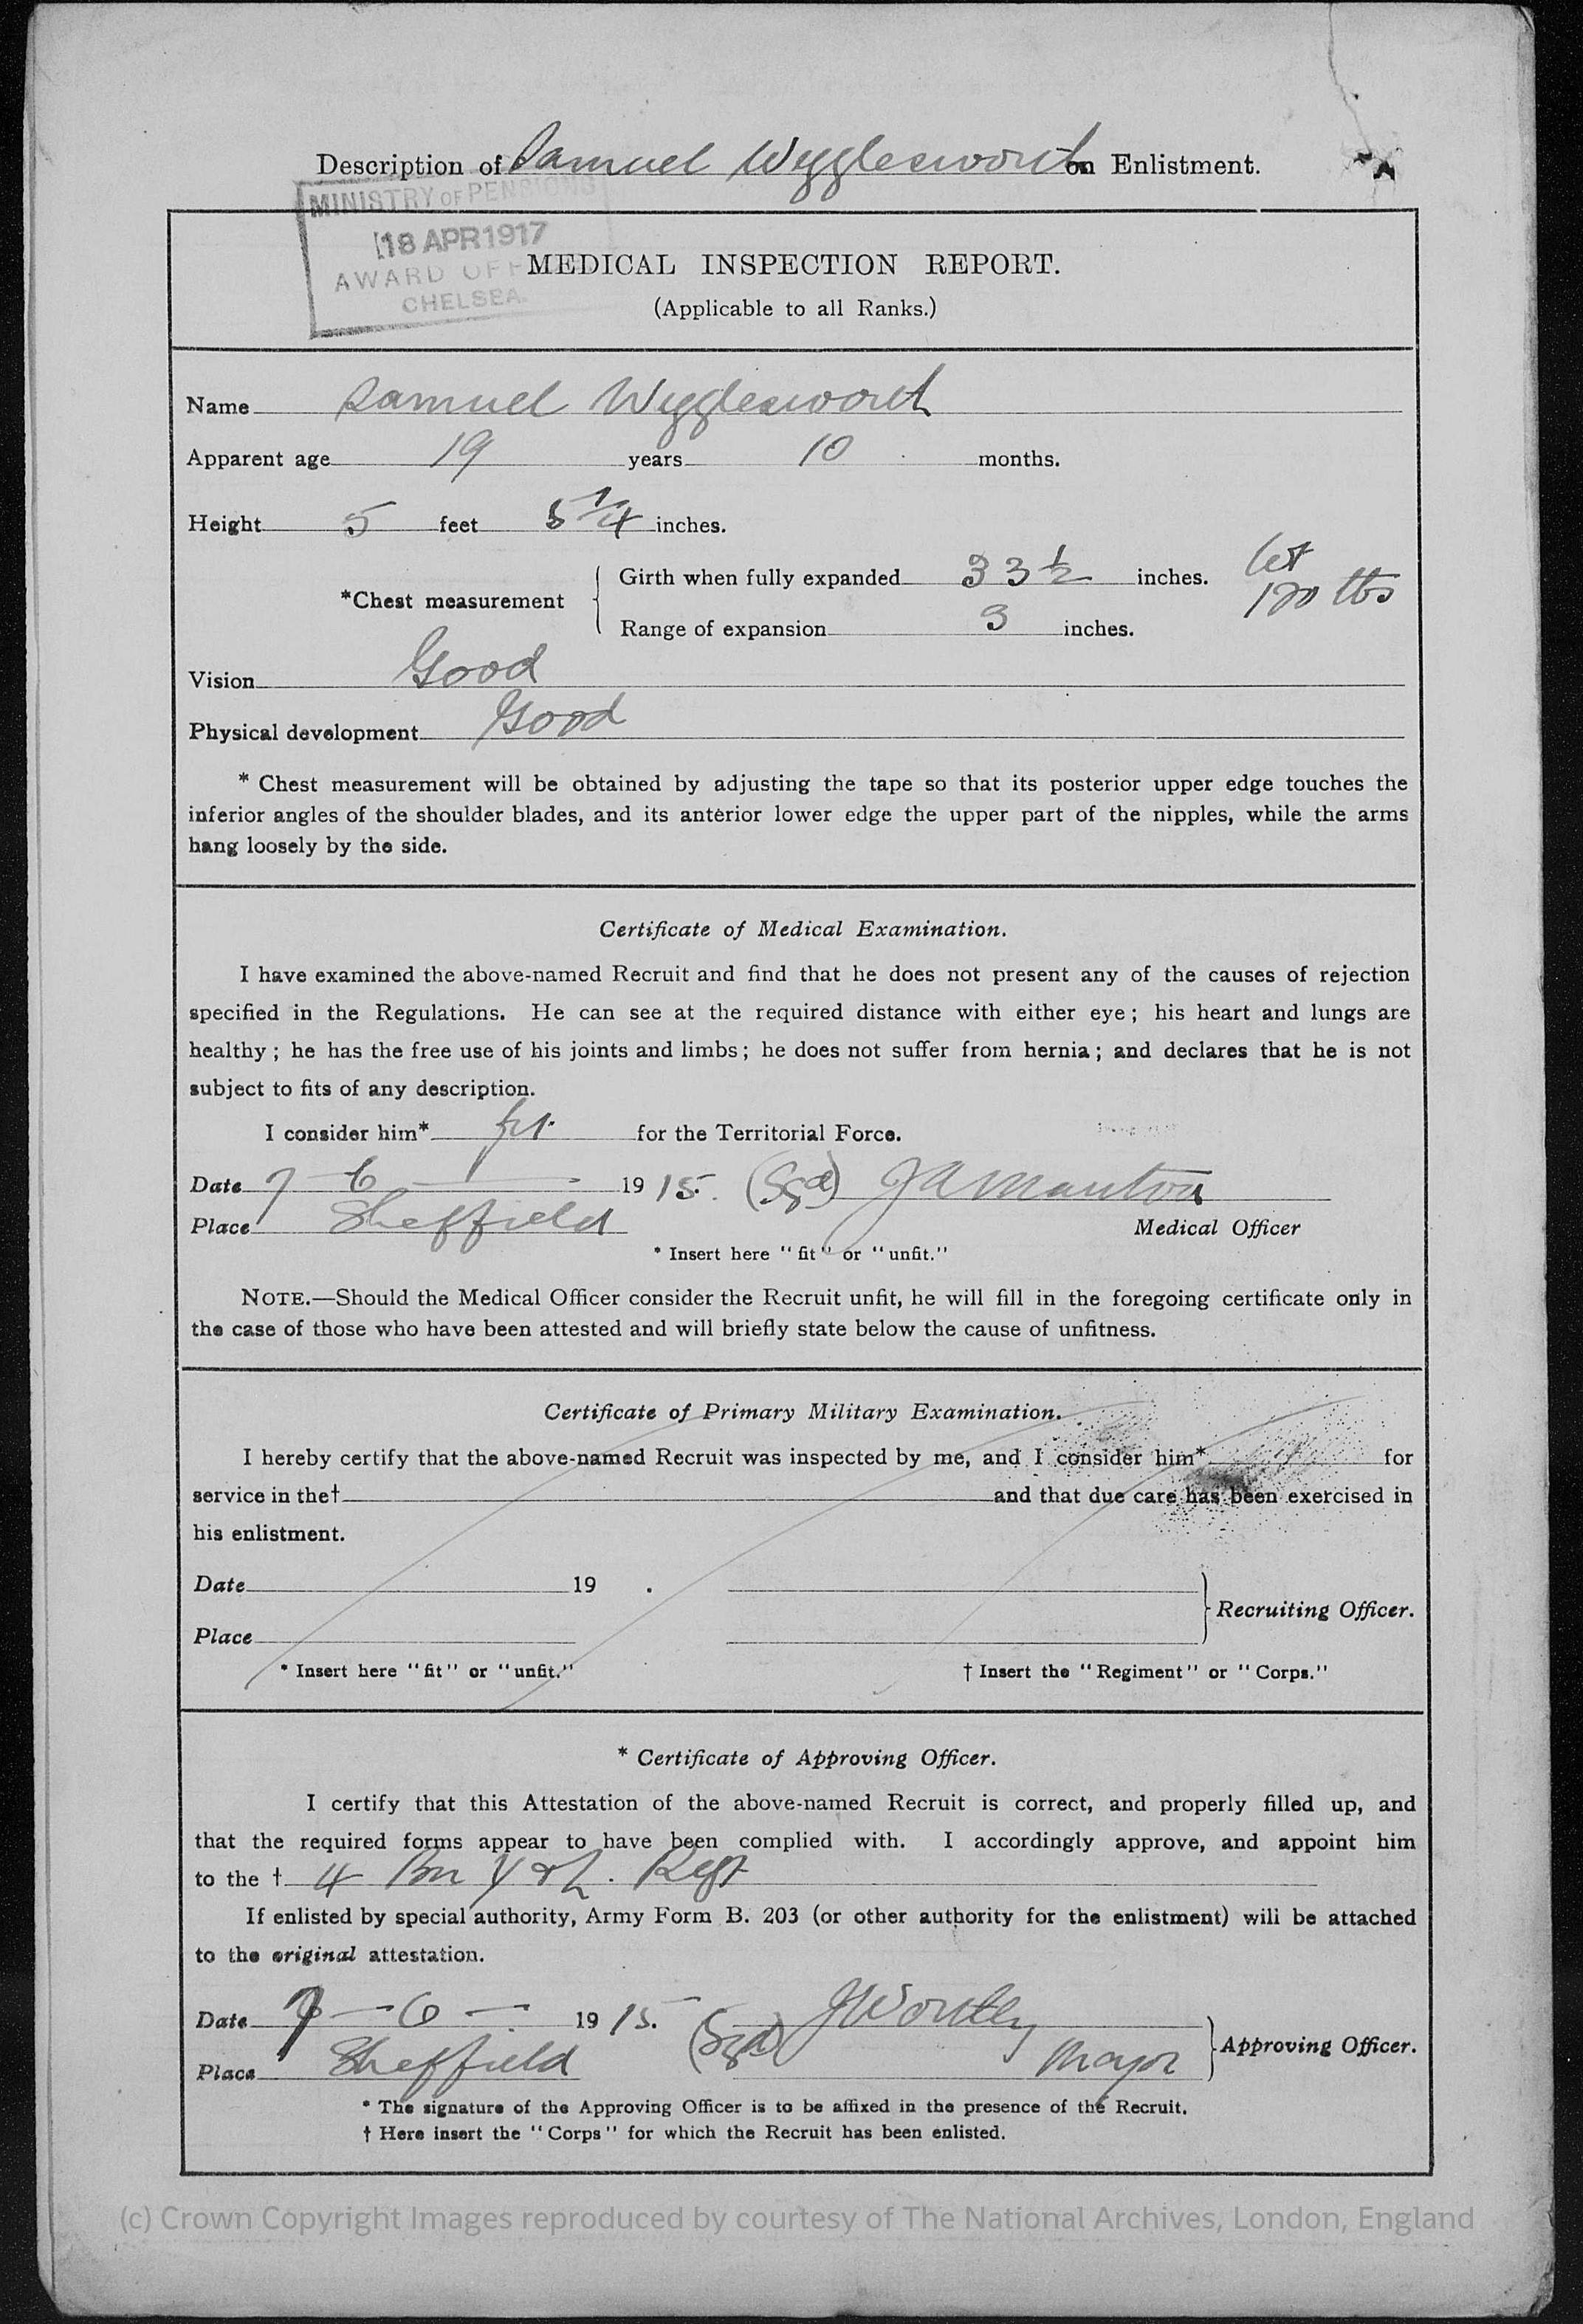 Description of Samuel Wigglesworth on Enlistment.
MINISTRY OF PENSIONS
18 APR 1917
AWARD OFFICE
CHELSEA.
MEDICAL INSPECTION REPORT.
(Applicable to all Ranks.)
Name Samuel Wigglesworth
Apparent age 19 years 10 months.
Height 5 feet 5 1/4 inches.
*Chest measurement { Girth when fully expanded 33 1/2 inches.
Range of expansion 3 inches.
120 lbs
Vision Good
Physical development Good
* Chest measurement will be obtained by adjusting the tape so that its posterior upper edge touches the
inferior angles of the shoulder blades, and its anterior lower edge the upper part of the nipples, while the arms
hang loosely by the side.
Certificate of Medical Examination.
I have examined the above-named Recruit and find that he does not present any of the causes of rejection
specified in the Regulations. He can see at the required distance with either eye; his heart and lungs are
healthy; he has the free use of his joints and limbs; he does not suffer from hernia; and declares that he is not
subject to fits of any description.
I consider him* fit for the Territorial Force.
Date 7 - 6 - 1915. (Sgd) J A Manton
Place Sheffield Medical Officer
* Insert here "fit" or "unfit."
NOTE.—Should the Medical Officer consider the Recruit unfit, he will fill in the foregoing certificate only in
the case of those who have been attested and will briefly state below the cause of unfitness.
Certificate of Primary Military Examination.
I hereby certify that the above-named Recruit was inspected by me, and I consider him* for
service in the† and that due care has been exercised in
his enlistment.
Date 19 .
Recruiting Officer.
Place
* Insert here "fit" or "unfit." † Insert the "Regiment" or "Corps."
* Certificate of Approving Officer.
I certify that this Attestation of the above-named Recruit is correct, and properly filled up, and
that the required forms appear to have been complied with. I accordingly approve, and appoint him
to the † 4 Bn Y & L. Regt
If enlisted by special authority, Army Form B. 203 (or other authority for the enlistment) will be attached
to the original attestation.
Date 7 - 6 - 1915. (Sgd) J Wortley
Approving Officer.
Place Sheffield Major
* The signature of the Approving Officer is to be affixed in the presence of the Recruit.
† Here insert the "Corps" for which the Recruit has been enlisted.
(c) Crown Copyright Images reproduced by courtesy of The National Archives, London, England